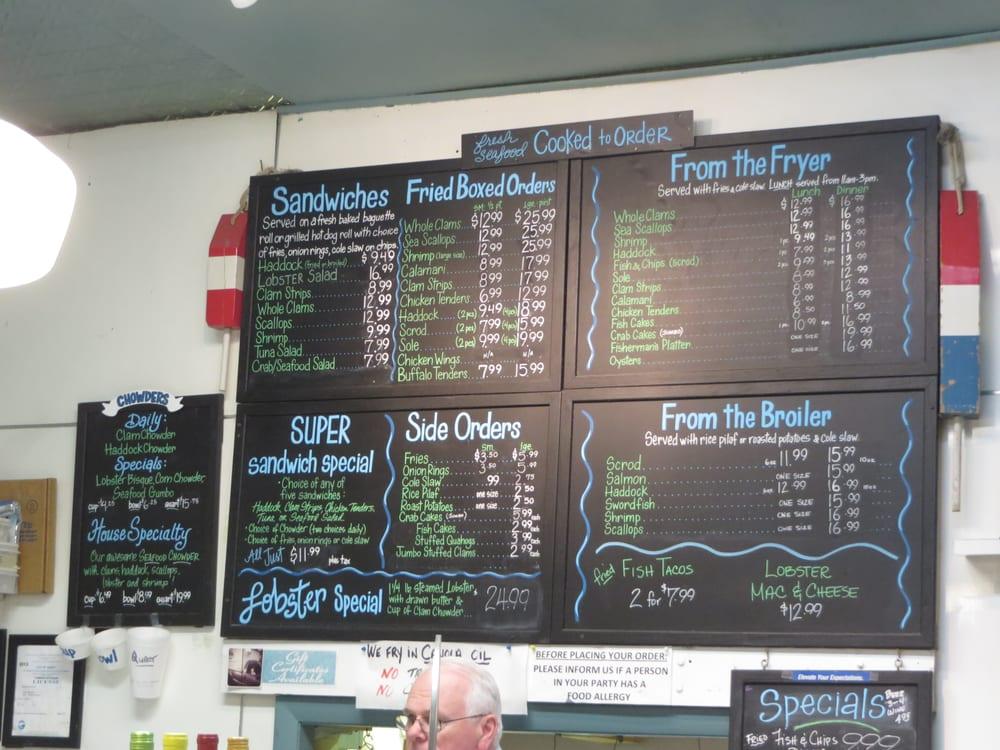 fresh Seafood Cooked to Order
Sandwiches
Served on a fresh baked baguette
roll or grilled hot dog roll with choice
of fries, onion rings, cole slaw or chips
Haddock (fried or broiled) $9.49
Lobster Salad 16.99
Clam Strips 8.99
Whole Clams 12.99
Scallops 12.99
Shrimp 9.99
Tuna Salad 7.99
Crab/Seafood Salad 7.99
Fried Boxed Orders
sm. ½ pt. lge. pint
Whole Clams $12.99 $25.99
Sea Scallops 12.99 25.99
Shrimp (large size) 12.99 25.99
Calamari 8.99 17.99
Clam Strips 8.99 17.99
Chicken Tenders 6.99 12.99
Haddock (2pcs) 9.49 (4pcs) 18.99
Scrod (2pcs) 7.99 (4pcs) 15.99
Sole (2pcs) 9.99 (4pcs) 19.99
Chicken Wings n/a n/a
Buffalo Tenders 7.99 15.99
From the Fryer
Served with fries & cole slaw. Lunch served from 11am-3pm.
Lunch Dinner
Whole Clams
Sea Scallops
Shrimp
Haddock
Fish & Chips (scrod)
Sole
Clam Strips
Calamari
Chicken Tenders
Fish Cakes
Crab Cakes
Fisherman's Platter ONE SIZE
Oysters ONE SIZE
CHOWDERS
Daily:
Clam Chowder
Haddock Chowder
Specials:
Lobster Bisque, Corn Chowder
Seafood Gumbo
House Specialty
Our awesome Seafood Chowder
with clams, haddock, scallops,
lobster and shrimp!
cup $6.49 bowl $8.99 quart $19.99
SUPER
sandwich special
• Choice of any of
five sandwiches •
Haddock, Clam Strips, Chicken Tenders,
Tuna or Seafood Salad
• Choice of Chowder (two choices daily)
• Choice of fries, onion rings or cole slaw
All Just $11.99 plus tax
Side Orders
sm. lge.
Fries $3.50 $5.99
Onion Rings 3.50 5.99
Cole Slaw .99
Rice Pilaf one size
Roast Potatoes one size
Crab Cakes
Fish Cakes
Stuffed Quahogs
Jumbo Stuffed Clams
Lobster Special
1¼ lb steamed Lobster
with drawn butter &
Cup of Clam Chowder... $24.99
From the Broiler
Served with rice pilaf or roasted potatoes & cole slaw.
Scrod 6oz 11.99 15.99 10oz
Salmon ONE SIZE 15.99
Haddock 12.99 16.99
Swordfish ONE SIZE 15.99
Shrimp ONE SIZE 16.99
Scallops ONE SIZE 16.99
fried Fish Tacos
2 for $7.99
Lobster
Mac & Cheese
$12.99
Cup
Bowl
Quart
LICENSE
Gift
Certificates
Available
*WE FRY IN CANOLA OIL
NO
NO
BEFORE PLACING YOUR ORDER:
PLEASE INFORM US IF A PERSON
IN YOUR PARTY HAS A
FOOD ALLERGY
Elevate Your Expectations.
Specials
FRIED Fish & Chips 9.99